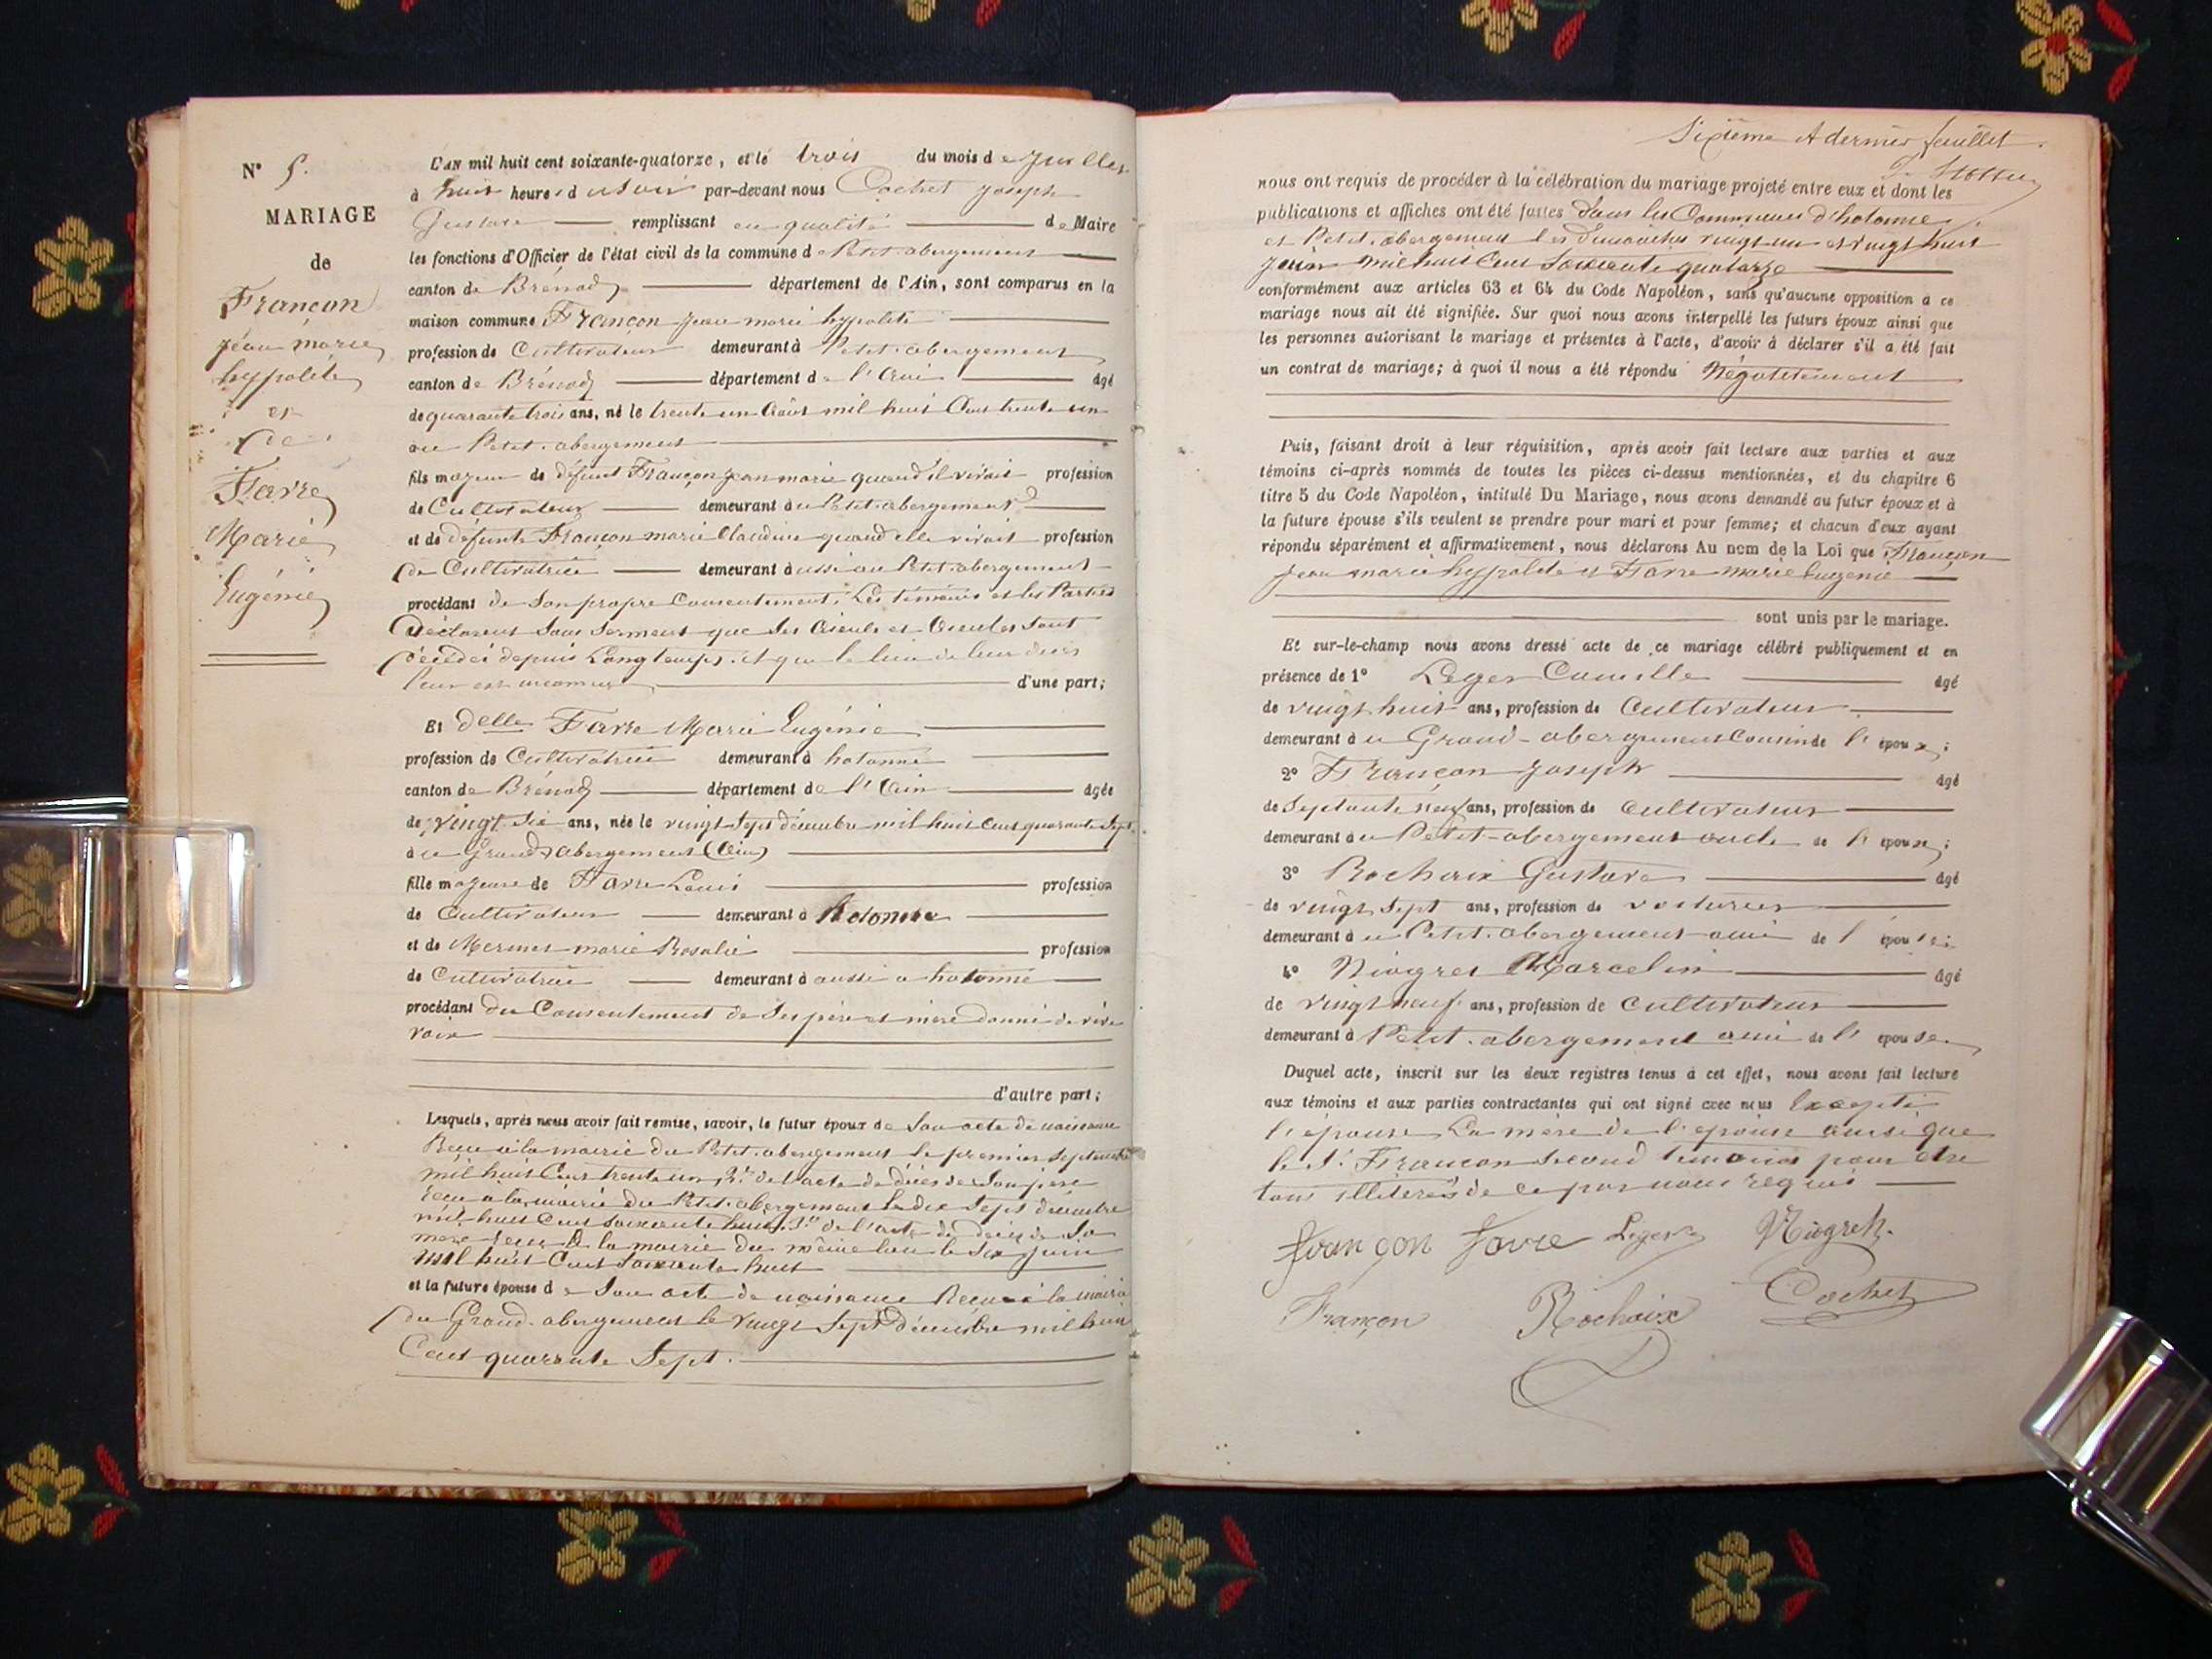 N° 5.
MARIAGE
de
Françon
jean marie
hypolite
et
de
Favre
Marie
Eugénie
L'AN mil huit cent soixante-quatorze, et le trois du mois de Juillet
à huit heures du soir par-devant nous Cochet joseph
Gustave remplissant en qualité de Maire
les fonctions d'Officier de l'état civil de la commune d Petit-abergement
canton de Brénod département de l'Ain, sont comparus en la
maison commune Françon jean marie hypolite
profession de Cultivateur demeurant à Petit-abergement
canton de Brénod département de l'Ain âgé
de quarante trois ans, né le trente un Août mil huit Cent trente un
au Petit-abergement
fils majeur de défunt Françon jean marie quand il vivait profession
de Cultivateur demeurant au Petit-abergement
et de défunte Françon marie Claudine quand elle vivait profession
de Cultivatrice demeurant aussi au Petit-abergement
procédant de Son propre Consentement. Les témoins et les Parties
déclarent Sous Serment que Ses Aieuls et Aieules Sont
décédés depuis Longtemps et que le lieu de leur décès
leur est inconnu d'une part;
Et delle Favre Marie Eugénie
profession de Cultivatrice demeurant à hotonne
canton de Brénod département de l'Ain âgée
de vingt Six ans, née le vingt Sept décembre mil huit Cent quarante Sept
au Grand abergement (Ain)
fille majeure de Favre Louis profession
de Cultivateur demeurant à hotonne
et de Mermet marie Rosalie profession
de Cultivatrice demeurant à aussi a hotonne
procédant du Consentement de Ses père et mère donné de vive
voix
d'autre part;
Lesquels, après nous avoir fait remise, savoir, le futur époux de Son acte de naissance
Recu à la mairie du Petit-abergement le premier Septembre
mil huit Cent trente un 2° de l'acte de décès de Son père
recu à la mairie du Petit-abergement le dix Sept décembre
mil huit Cent Soixante huit. 3° de l'acte de décès de Sa
mère recu à la mairie du même lieu le Six juin
mil huit Cent Soixante huit
et la future épouse de Son acte de naissance Recu à la mairie
du Grand-abergement le vingt Sept décembre mil huit
Cent quarante Sept.
Sixième et dernier feuillet.
nous ont requis de procéder à la célébration du mariage projeté entre eux et dont les
publications et affiches ont été faites dans les Communes d'hotonne
et Petit-abergement les dimanches vingt un et vingt huit
juin mil huit Cent Soixante quatorze
conformément aux articles 63 et 64 du Code Napoléon, sans qu'aucune opposition a ce
mariage nous ait été signifiée. Sur quoi nous avons interpellé les futurs époux ainsi que
les personnes autorisant le mariage et présentes à l'acte, d'avoir à déclarer s'il a été fait
un contrat de mariage; à quoi il nous a été répondu Négativement
Puis, faisant droit à leur réquisition, après avoir fait lecture aux parties et aux
témoins ci-après nommés de toutes les pièces ci-dessus mentionnées, et du chapitre 6
titre 5 du Code Napoléon, intitulé Du Mariage, nous avons demandé au futur époux et à
la future épouse s'ils veulent se prendre pour mari et pour femme; et chacun d'eux ayant
répondu séparément et affirmativement, nous déclarons Au nom de la Loi que Françon
jean marie hypolite et Favre marie Eugénie
sont unis par le mariage.
Et sur-le-champ nous avons dressé acte de ce mariage célébré publiquement et en
présence de 1° Leger Camille âgé
de vingt huit ans, profession de Cultivateur
demeurant au Grand-abergement Cousin de l'époux;
2° Françon joseph âgé
de Septante neuf ans, profession de Cultivateur
demeurant au Petit-abergement oncle de l'époux;
3° Rochaix Gustave âgé
de vingt Sept ans, profession de voiturier
demeurant au Petit-abergement ami de l'épouse;
4° Niogret Marcelin âgé
de vingt neuf ans, profession de Cultivateur
demeurant à Petit-abergement ami de l'épouse
Duquel acte, inscrit sur les deux registres tenus à cet effet, nous avons fait lecture
aux témoins et aux parties contractantes qui ont signé avec nous Excepté
l'épouse La mère de l'épouse ainsi que
le Sr Françon Second témoin pour être
tous illiterés de ce par nous requis
françon favre Leger Niogret.
Françon Rochaix Cochet